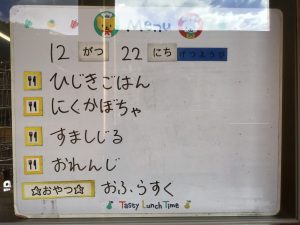 Menu
12 がつ 22 にち げつようび
ひじきごはん
にくかぼちゃ
すましじる
おれんじ
☆おやつ☆ おふらすく
Tasty Lunch Time